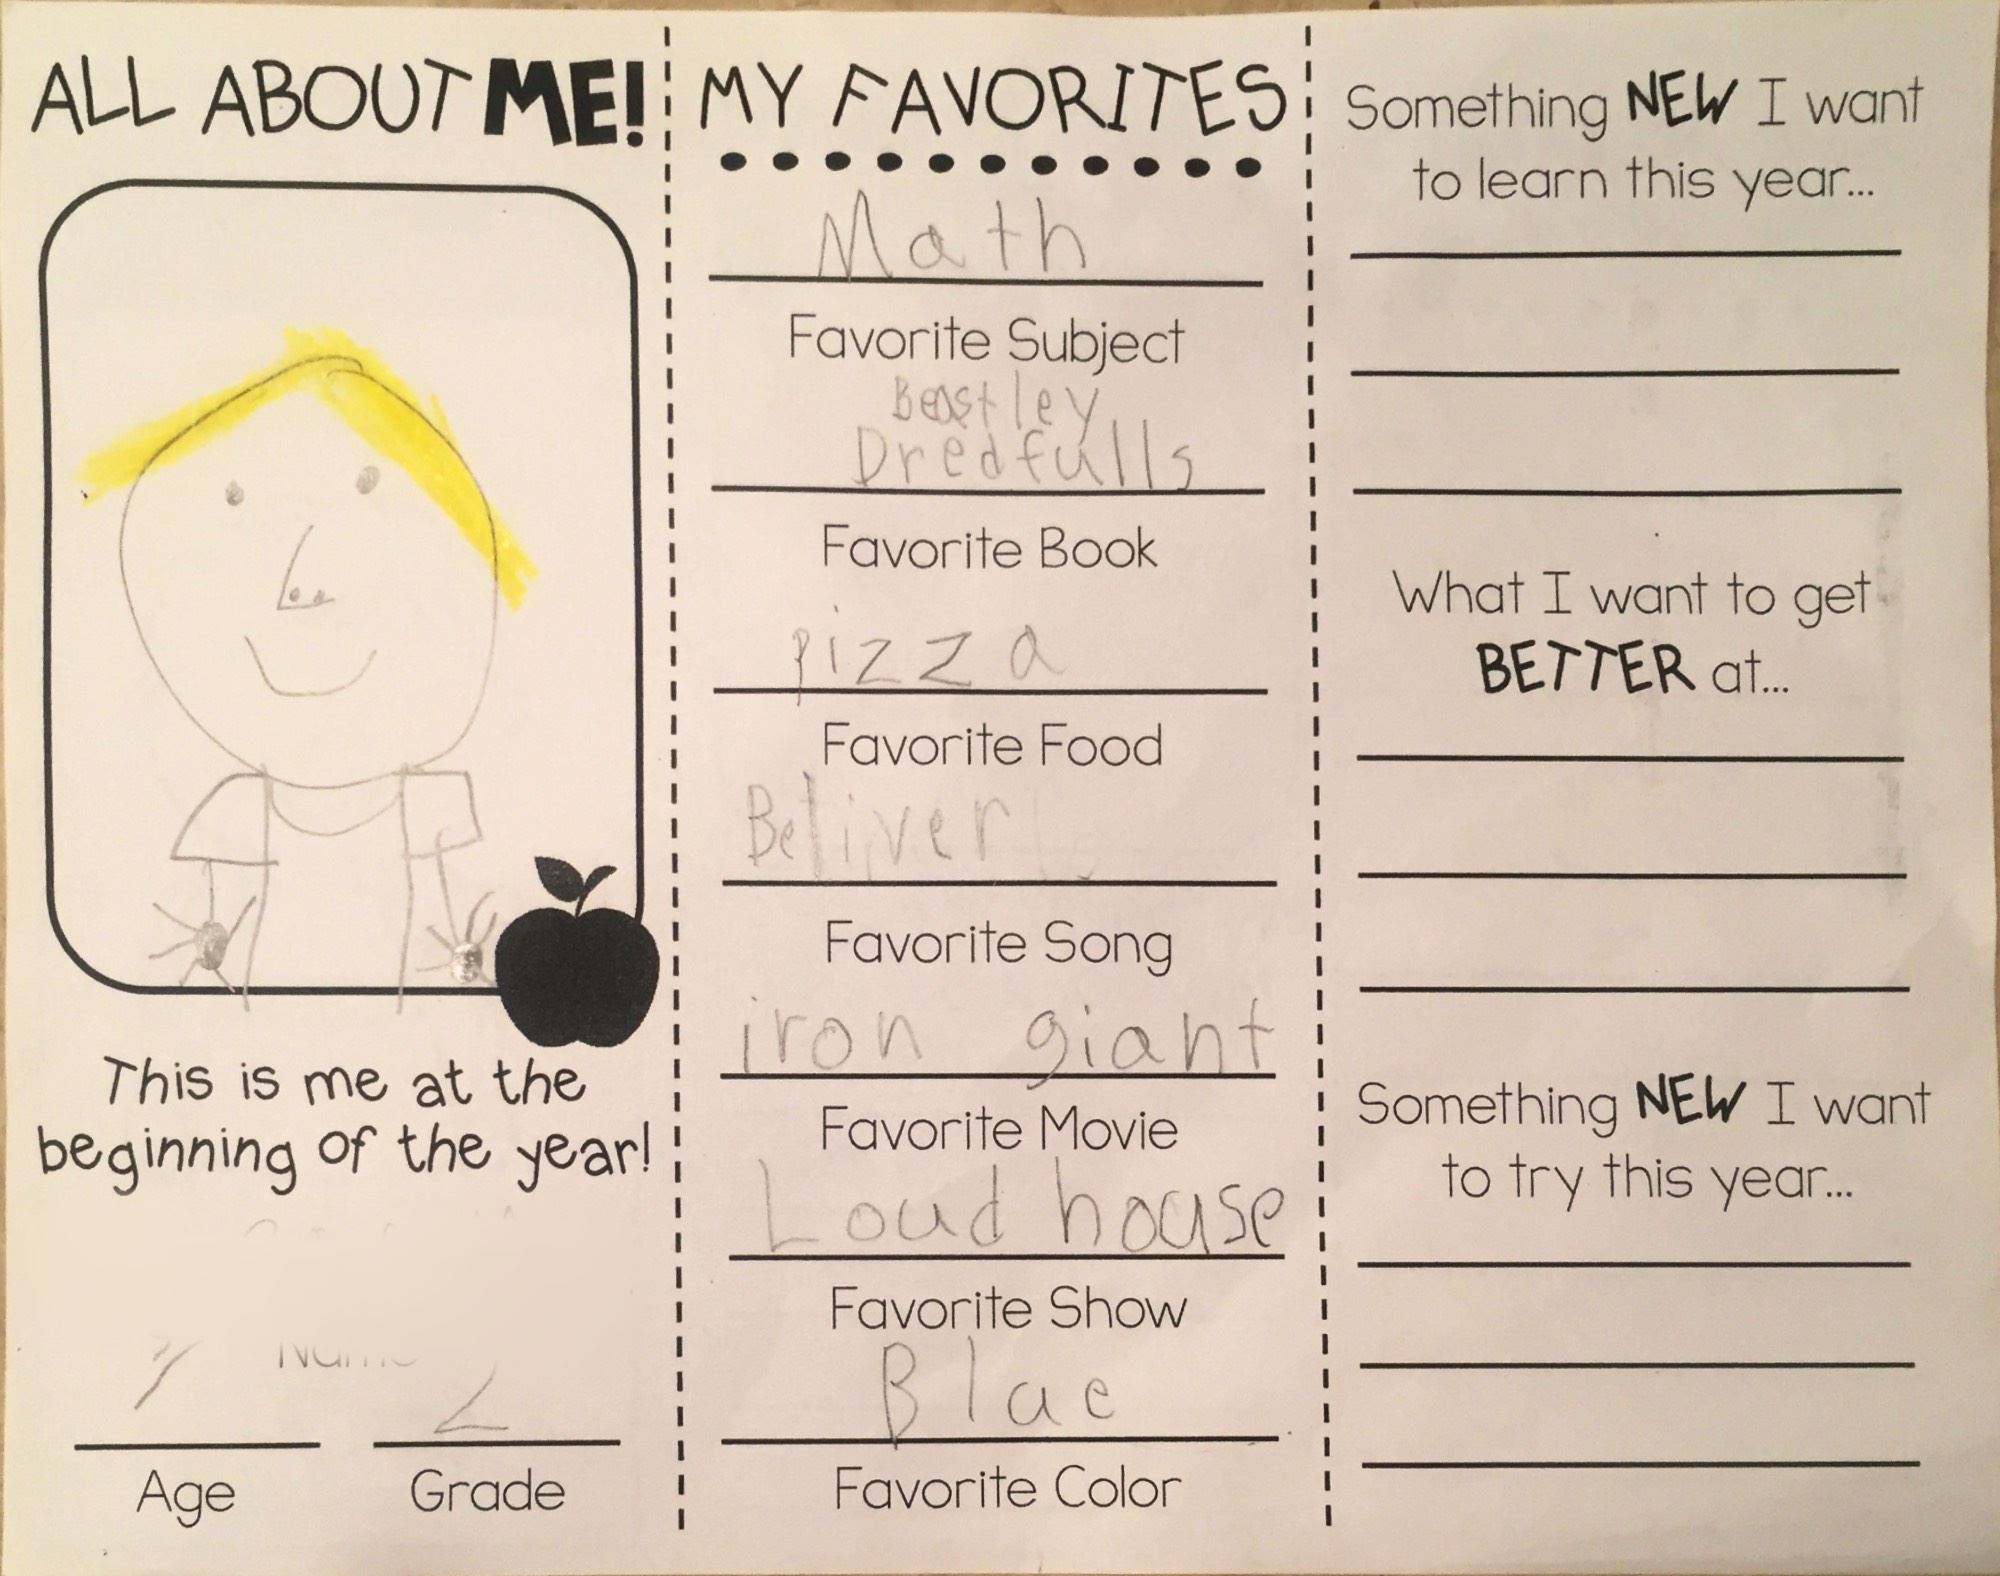 ALL ABOUT ME!
This is me at the
beginning of the year!
7
2
Age
Grade
MY FAVORITES
Math
Favorite Subject
Beastley
Dredfulls
Favorite Book
pizza
Favorite Food
Beliver
Favorite Song
iron giant
Favorite Movie
Loud house
Favorite Show
Blue
Favorite Color
Something NEW I want
to learn this year...
What I want to get
BETTER at...
Something NEW I want
to try this year...